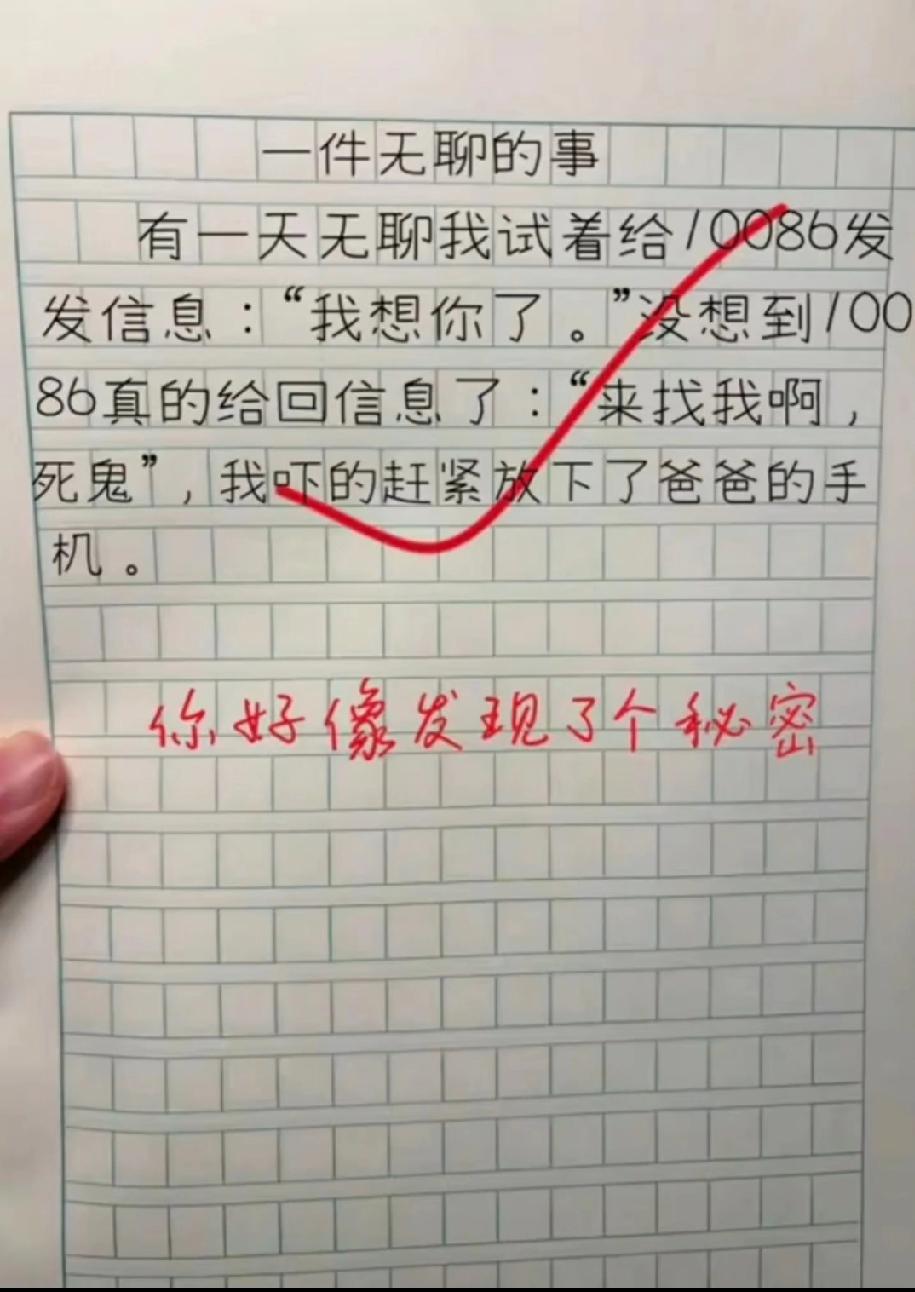 一件无聊的事
有一天无聊我试着给10086发
发信息：“我想你了。”没想到100
86真的给回信息了：“来找我啊，
死鬼”，我吓的赶紧放下了爸爸的手
机。
你好像发现了个秘密